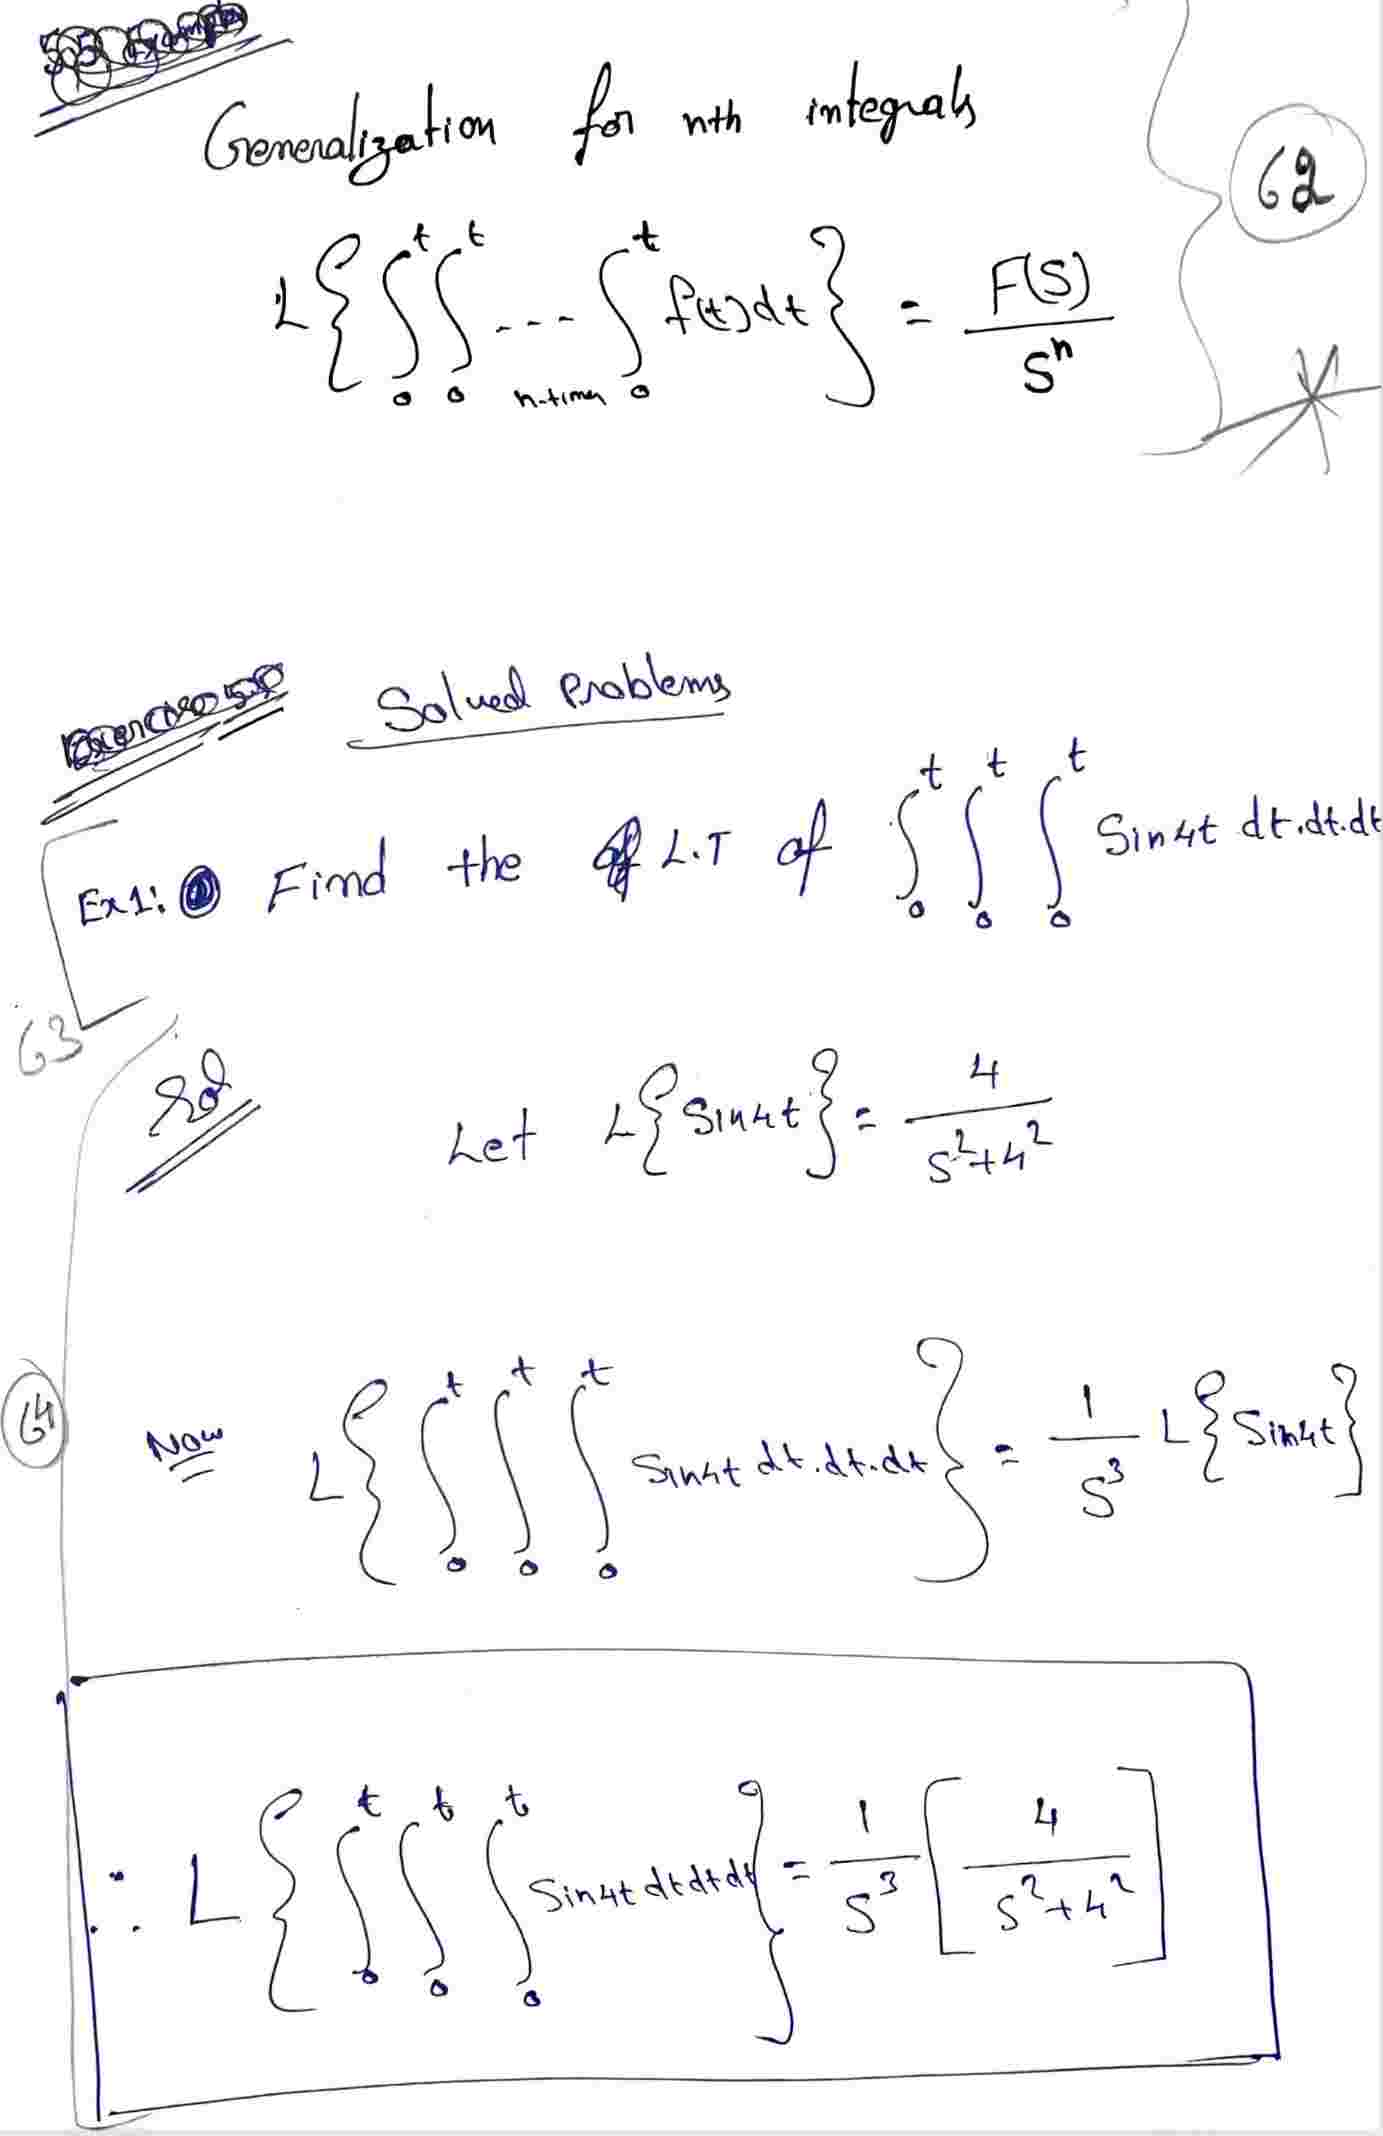 Generalization for nth integrals
62
L{∫₀ᵗ ∫₀ᵗ ---- ∫₀ᵗ f(t)dt} = F(S)/Sⁿ
n-times
Solved Problems
Ex1: Find the L.T of ∫₀ᵗ ∫₀ᵗ ∫₀ᵗ Sin4t dt.dt.dt
63
Sol
Let L{Sin4t} = 4/(S²+4²)
64
Now L{∫₀ᵗ ∫₀ᵗ ∫₀ᵗ Sin4t dt.dt.dt} = 1/S³ L{Sin4t}
∴ L{∫₀ᵗ ∫₀ᵗ ∫₀ᵗ Sin4t dt dt dt} = 1/S³ [4/(S²+4²)]